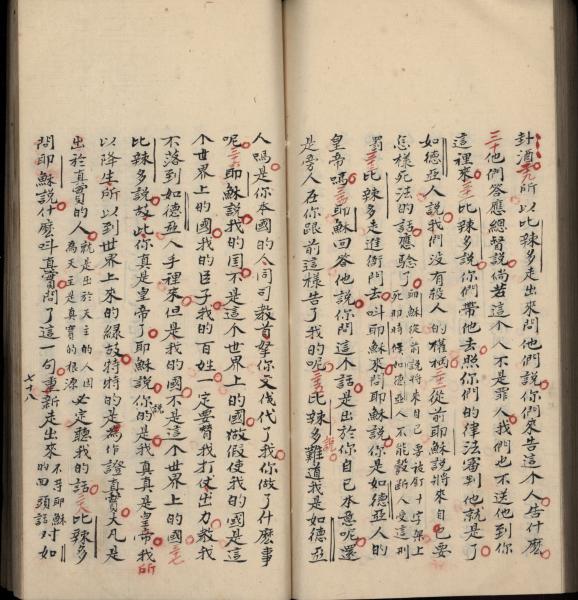 封酒 二九 所以比辣多走出來問他們說你們來告這個人告什麽
三十 他們答應總督說倘若這個人不是罪人我們也不送他到你
這裡來 三一 比辣多說你們帶他去照你們的律法審判他就是了
如德亞人說我們沒有殺人的權柄 三二 從前耶穌說將來自己要
怎樣死法的話應驗了 耶穌從前說將來自己要被釘十字架上死那時候如德亞人不能殺斷人受這刑
罰 三三 比辣多走進衙門去呌耶穌來問耶穌說你是如德亞人的
皇帝嗎 三四 耶穌回答他說你問這个話是出於你自己本意呢還
是旁人在你跟前這樣告了我的呢 三五 比辣多說難道我是如德亞
人嗎是你本國的人同司教首拏你交伐代了我你做了什麽事
呢 三六 耶穌說我的国不是這个世界上的國做假使我的國是這
个世界上的國我的臣子我的百姓一定要替我打仗出力救我
不落到如德亞人手裡來但是我的國不是這个世界上的國 三七
比辣多說故此你真是皇帝了耶穌說你說的是我真真是皇帝我所
以降生所以到世界上來的緣故特特的是爲作證真實大凡是
出於真實的人 就是出於天主的人因爲天主是真實的根源 必定聽我的話 三八 比辣多
問耶穌說什麽呌真實問了這一句重新走出來 不等耶穌的回頭話 对如
七十八